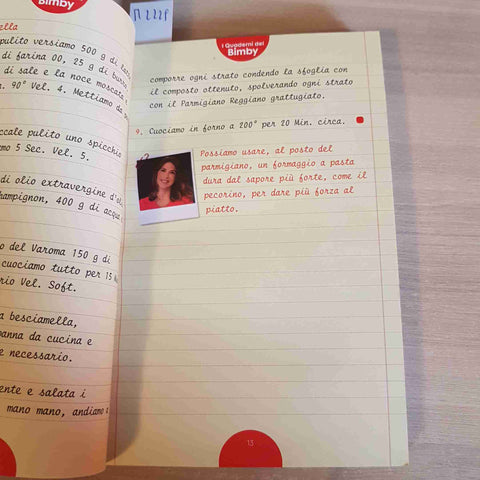 Bimby
ella
pulito versiamo 500 g di latte,
di farina 00, 25 g di burro,
di sale e la noce moscata
90° Vel. 4. Mettiamo da
ccale pulito uno spicchio
mo 5 Sec. Vel. 5.
di olio extravergine d'oli
hampignon, 400 g di acqua
o del Varoma 150 g di
cuociamo tutto per 15 M
rio Vel. Soft.
a besciamella,
panna da cucina e
e necessario.
ente e salata i
mano mano, andiamo a
I Quaderni del
Bimby
comporre ogni strato condendo la sfoglia con
il composto ottenuto, spolverando ogni strato
con il Parmigiano Reggiano grattugiato.
9. Cuociamo in forno a 200° per 20 Min. circa.
Possiamo usare, al posto del
parmigiano, un formaggio a pasta
dura dal sapore più forte, come il
pecorino, per dare più forza al
piatto.
13